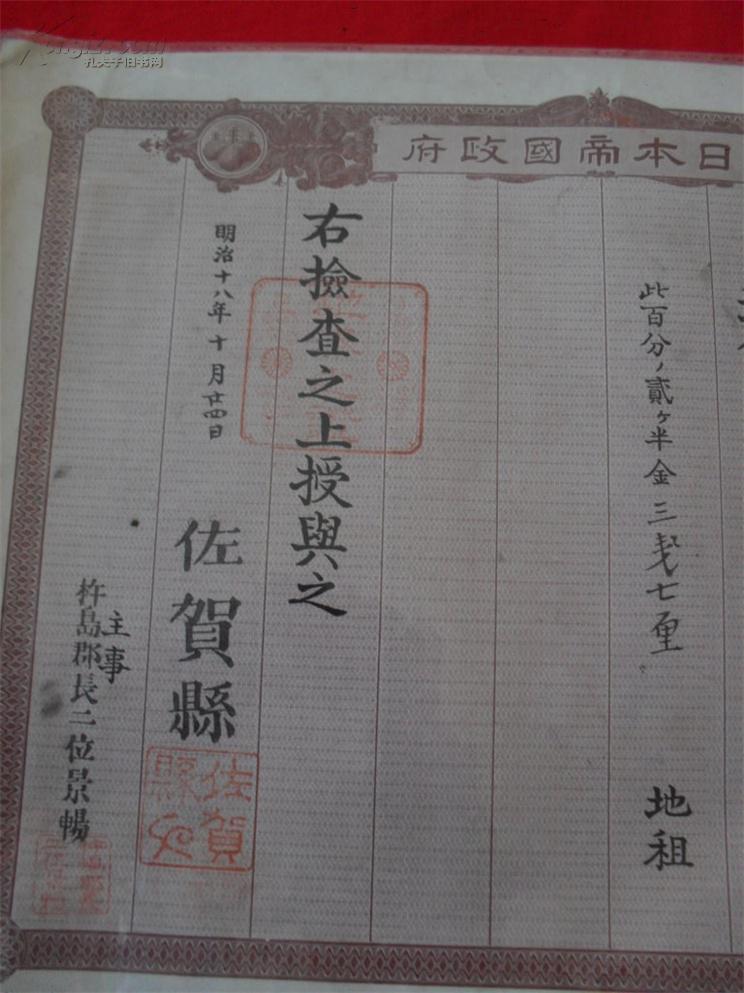 日本帝國政府
此百分ノ貳ヶ半金三銭七厘
地租
右撿査之上授與之
明治十八年十月廿四日
佐賀縣
主事
杵島郡長二位景暢
佐賀
縣印
孔夫子旧书网